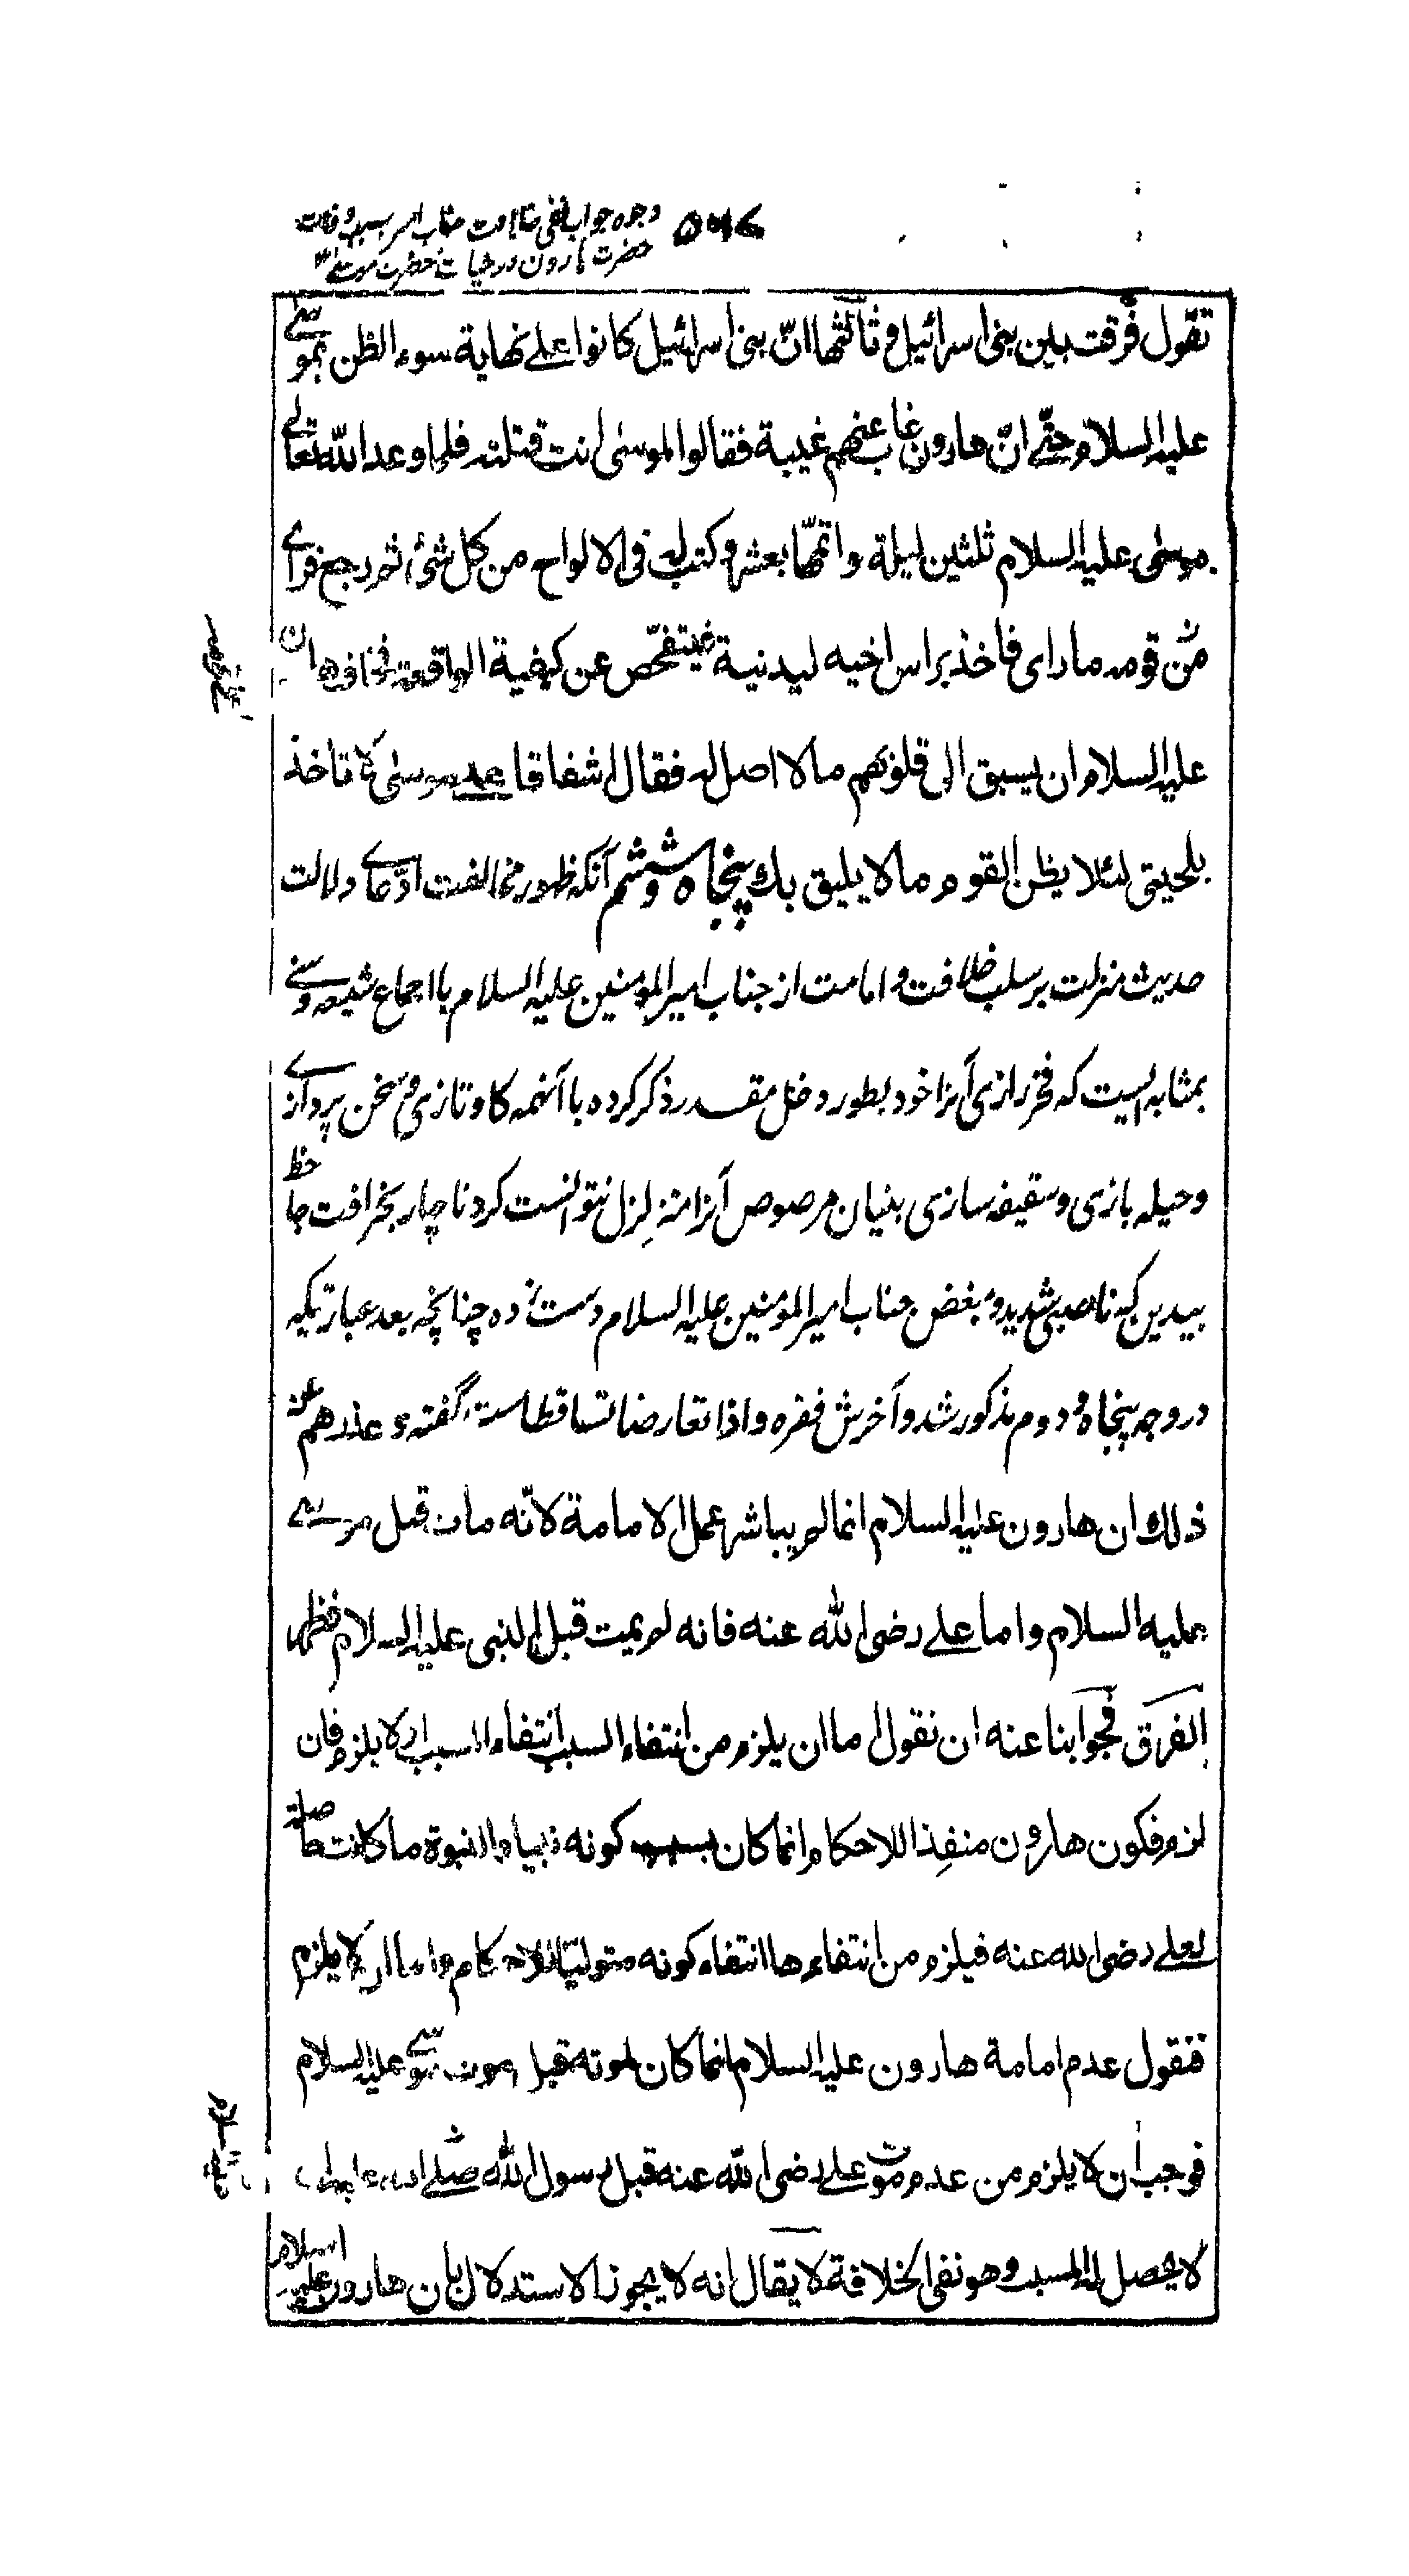 ۵۶۷ وجوه جواب نفی خلافت جناب امیر بسبب وفات
حضرت هارون در حیات حضرت موسی
تقول فرقت بین بنی اسرائیل و ثالثها انّ بنی اسرائیل کانوا علی نهایة سوء الظن بموسی
علیه السلام حتّی انّ هارون غاب عنهم غیبة فقالوا لموسی انت قتلته فلما وعد اللّه تعالی
موسی علیه السلام ثلثین لیلة و اتمّها بعشر و کتب له فی الالواح من کل شئ ثم رجع فرای
من قومه ما رای فاخذ براس اخیه لیدنیه فیتفحّص عن کیفیة الواقعة فخاف هارون
علیه السلام ان یسبق الی قلوبهم مالا اصل له فقال اشفاقا علی موسی لا تاخذ
بلحیتی لئلا یظن القوم مالا یلیق بك پنجاه و ششم آنکه ظهور مخالفت ادّعای دلالت
حدیث منزلت بر سلب خلافت و امامت از جناب امیر المؤمنین علیه السلام با اجماع شیعه و سنی
بمثابه ایست که فخر رازی آنرا خود بطور دخل مقدر ذکر کرده با آنهمه کاو تازی و سخن پردازی
و حیله بازی و سقیفه سازی بنیان مرصوص آنرا متزلزل نتوانست کرد ناچار بخرافت جاحظ
بیدین که ناصبی شدید و بغض جناب امیر المؤمنین علیه السلام دست زده چنانچه بعد عبارتیکه
در وجه پنجاه و دوم مذکور شد و آخرش فقره و اذا تعارضا تساقطا ست گفته و عذرهم عن
ذلك ان هارون علیه السلام انما لم یباشر عمل الامامة لانّه مات قبل موسی
علیه السلام و اما علی رضی الله عنه فانه لم یمت قبل النبی علیه السلام فظهر
الفرق فجوابنا عنه ان نقول اما ان یلزم من انتفاء السبب انتفاء المسبب او لا یلزم فان
لزم فکون هارون منفذا للاحکام انما کان بسبب کونه نبیا و النبوة ما کانت حاصلة
لعلی رضی الله عنه فیلزم من انتفاءها انتفاء کونه متولیّا للاحکام و اما ان لا یلزم
فنقول عدم امامة هارون علیه السلام انما کان لموته قبل موت موسی علیه السلام
فوجب ان لا یلزم من عدم موت علی رضی اللّه عنه قبل رسول اللّه صلی الله علیه
لا یحصل له المسبب و هو نفی الخلافة لا یقال انه لا یجوز الاستدلال بان هارون علیه السلام